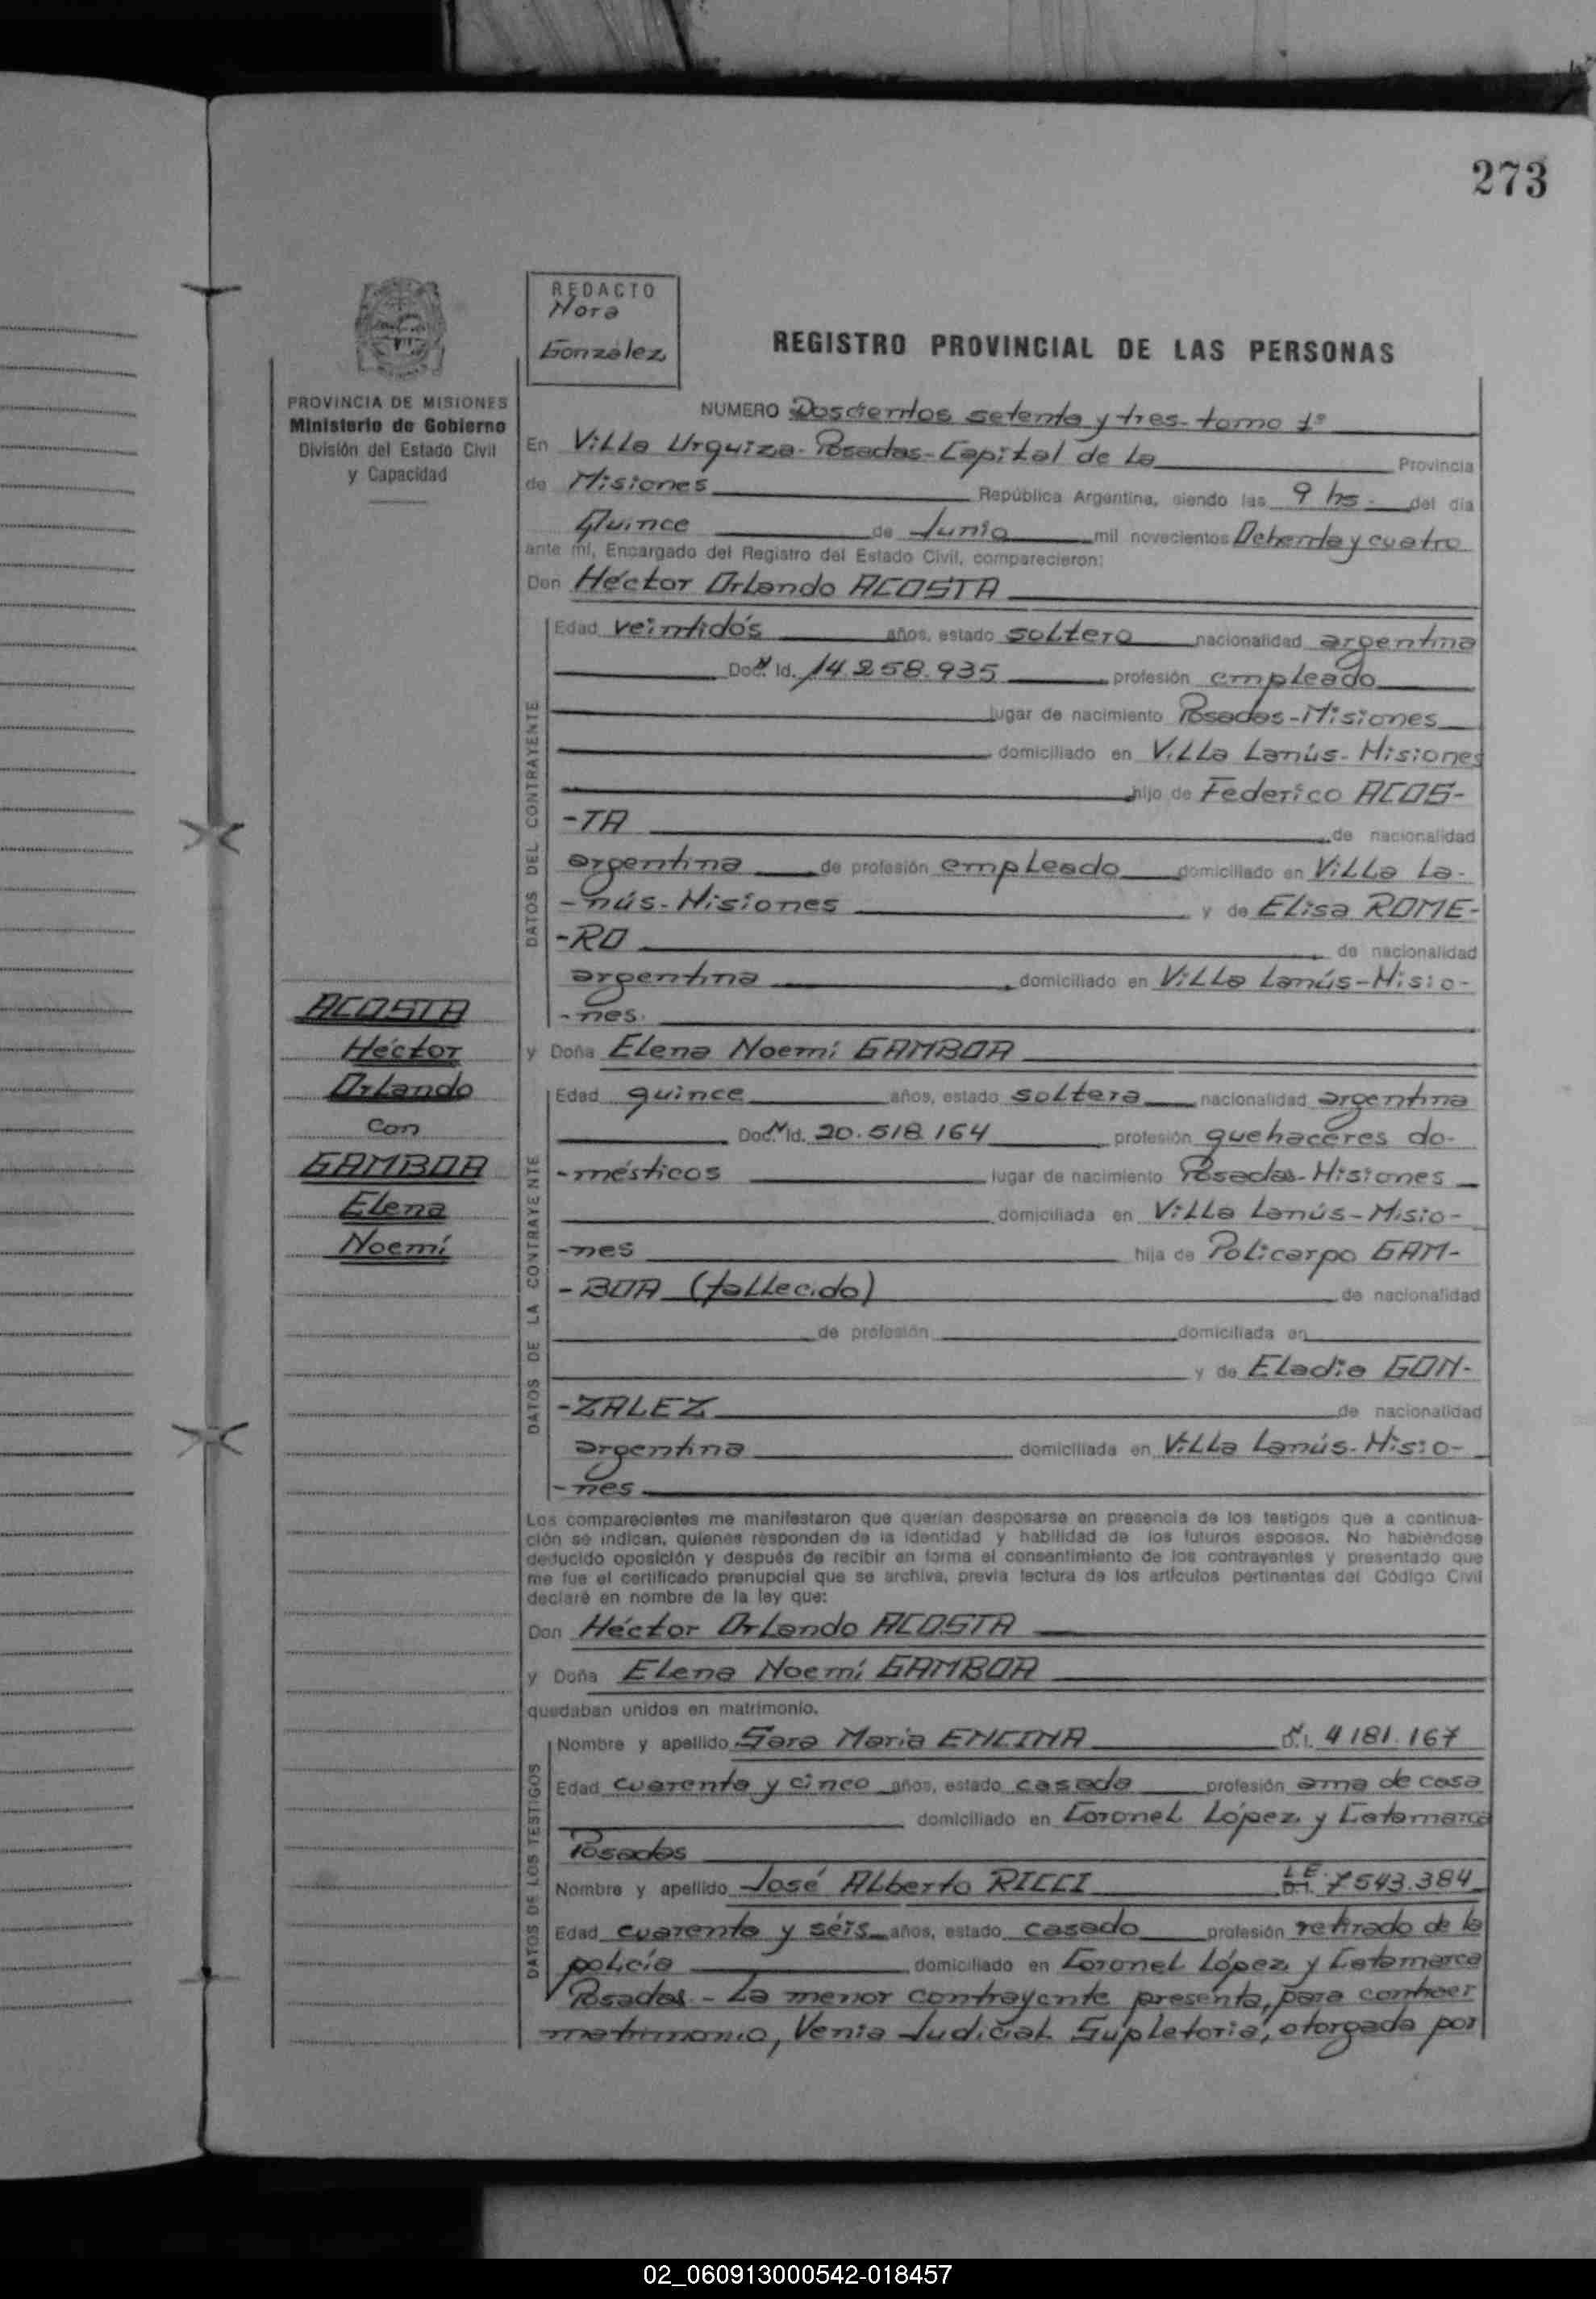 273
REDACTO
Nora
González
REGISTRO PROVINCIAL DE LAS PERSONAS
PROVINCIA DE MISIONES
Ministerio de Gobierno
División del Estado Civil
y Capacidad
NUMERO Doscientos setenta y tres-tomo 1º
En Villa Urquiza-Posadas-Capital de la Provincia
de Misiones República Argentina, siendo las 9 hs. del día
Quince de Junio mil novecientos Ochenta y cuatro
ante mí, Encargado del Registro del Estado Civil, comparecieron:
Don Héctor Orlando ACOSTA
DATOS DEL CONTRAYENTE
Edad veintidós años, estado soltero nacionalidad argentina
Doc. N Id. 14.258.935 profesión empleado
lugar de nacimiento Posadas-Misiones
domiciliado en Villa Lanús-Misiones
hijo de Federico ACOS-
-TA de nacionalidad
argentina de profesión empleado domiciliado en Villa La-
-nús-Misiones y de Elisa ROME-
-RO de nacionalidad
argentina domiciliado en Villa Lanús-Misio-
-nes.
ACOSTA
Héctor
Orlando
Con
GAMBOA
Elena
Noemí
y Doña Elena Noemí GAMBOA
DATOS DE LA CONTRAYENTE
Edad quince años, estado soltera nacionalidad argentina
Doc. N Id. 20.518.164 profesión quehaceres do-
-mésticos lugar de nacimiento Posadas-Misiones
domiciliada en Villa Lanús-Misio-
-nes hija de Policarpo GAM-
-BOA (fallecido) de nacionalidad
de profesión domiciliada en
y de Eladia GON-
-ZALEZ de nacionalidad
argentina domiciliada en Villa Lanús-Misio-
-nes
Los comparecientes me manifestaron que querían desposarse en presencia de los testigos que a continua-
ción se indican, quienes responden de la identidad y habilidad de los futuros esposos. No habiéndose
deducido oposición y después de recibir en forma el consentimiento de los contrayentes y presentado que
me fue el certificado prenupcial que se archiva, previa lectura de los artículos pertinentes del Código Civil
declaré en nombre de la ley que:
Don Héctor Orlando ACOSTA
y Doña Elena Noemí GAMBOA
quedaban unidos en matrimonio.
DATOS DE LOS TESTIGOS
Nombre y apellido Sara María ENCINA D.N.I. 4181.167
Edad cuarenta y cinco años, estado casada profesión ama de casa
domiciliado en Coronel López y Catamarca
Posadas
Nombre y apellido José Alberto RICCI L.E. D.I. 7543.384
Edad cuarenta y séis años, estado casado profesión retirado de la
policía domiciliado en Coronel López y Catamarca
Posadas - La menor contrayente presenta, para contraer
matrimonio, Venia Judicial Supletoria, otorgada por
02_060913000542-018457